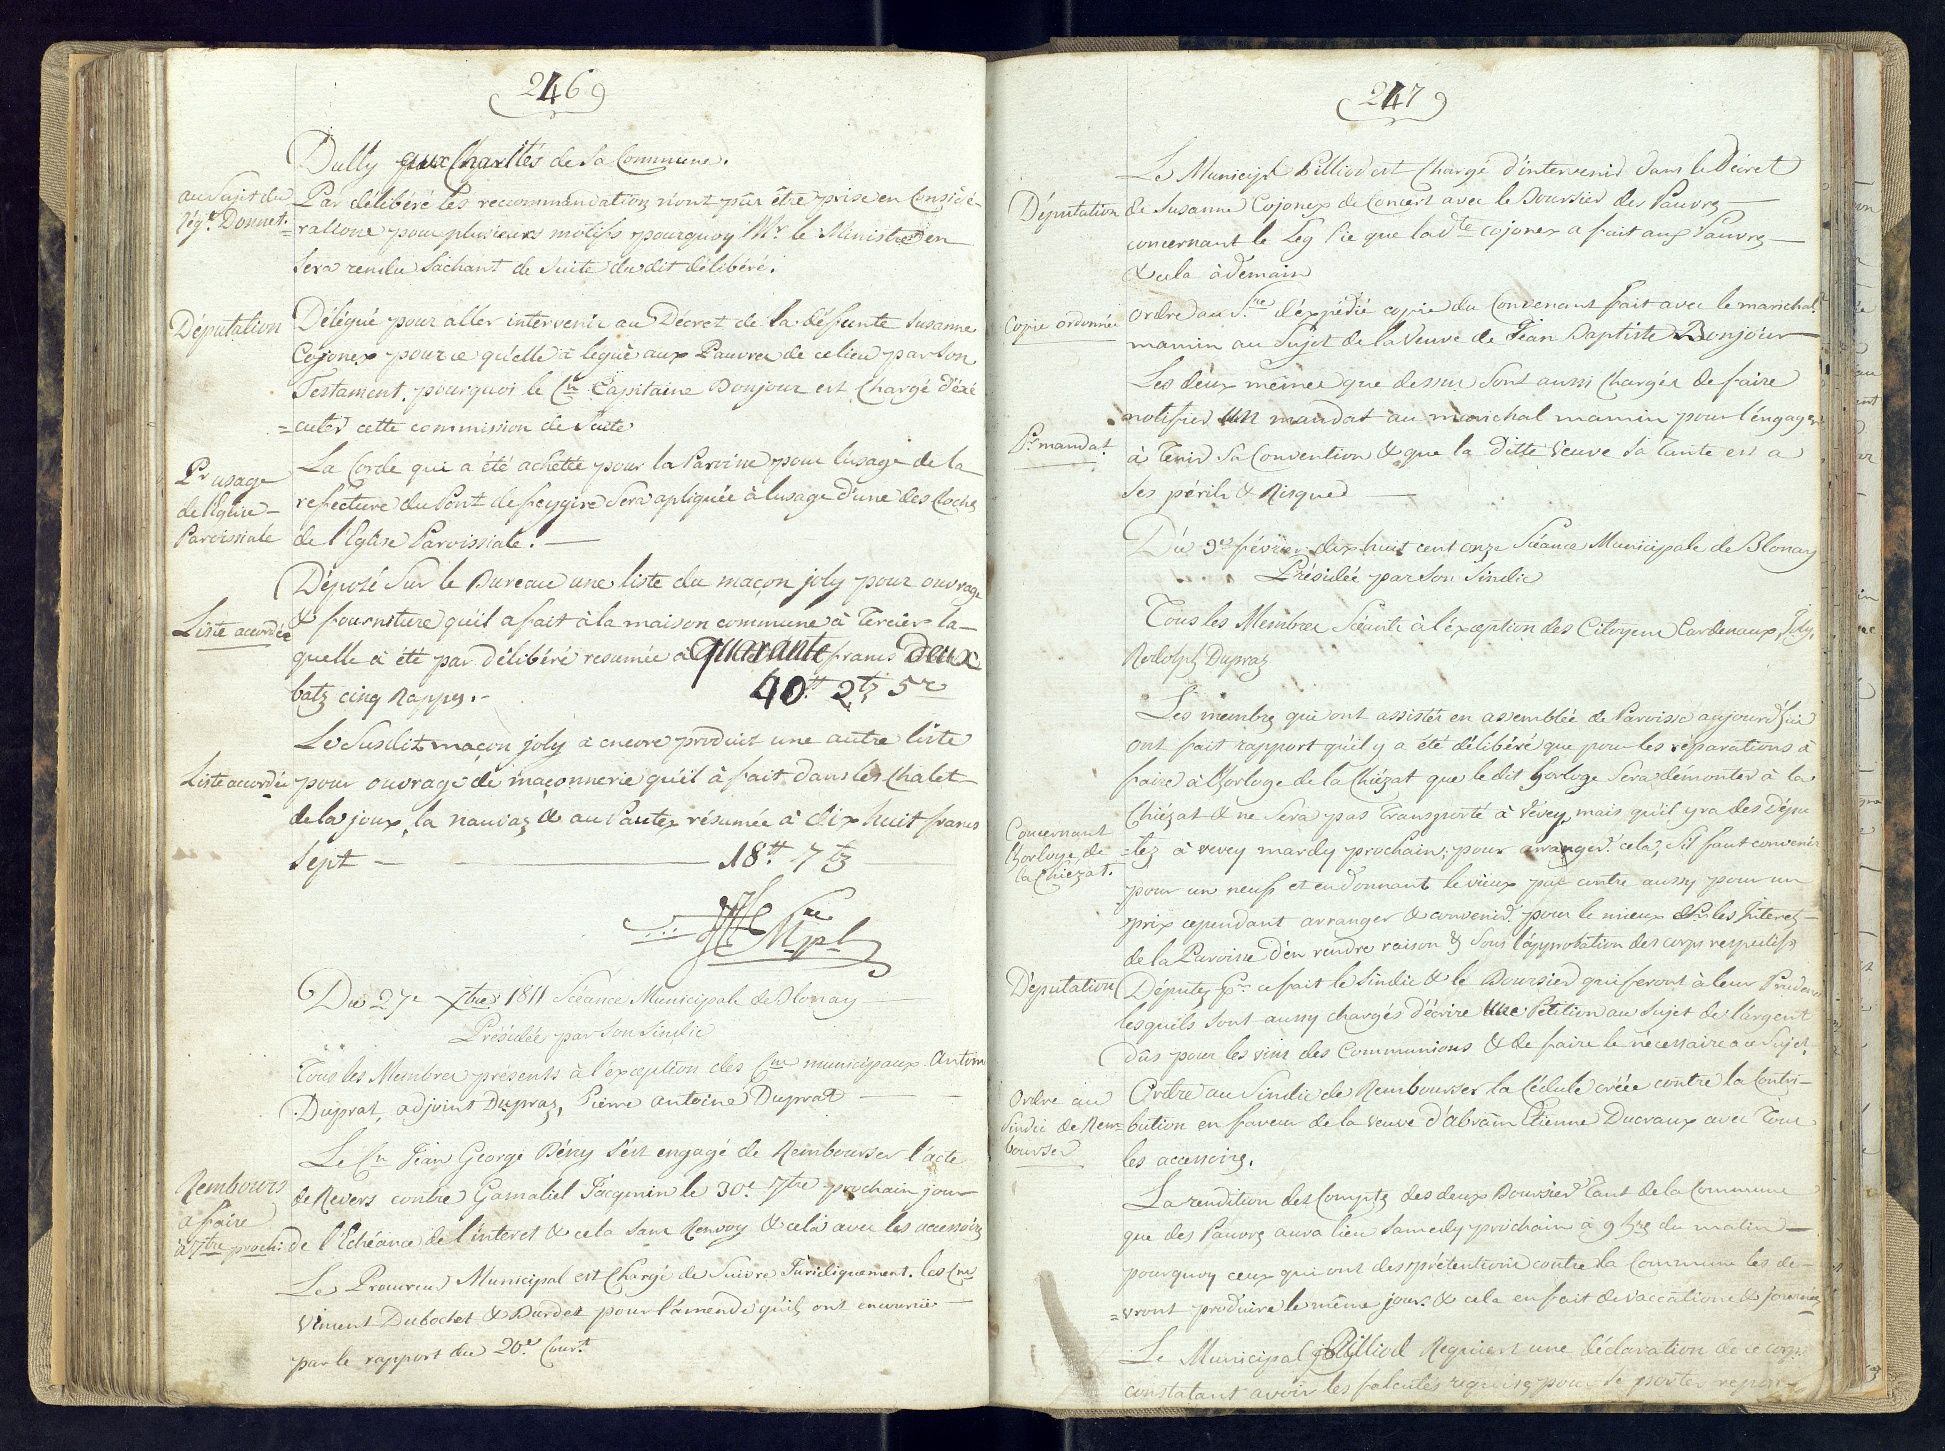 246
Dully aux Charités de sa Commune.
au Sujet du
Rég.t Donnet.
Par délibéré les recommandations n'ont pu être prise en Considé-
=rations pour plusieurs motifs pourquoy Mr. le Ministre en
sera rendu sachant de suite du dit délibéré.
Députation
Délégué pour aller intervenir au Décret de la défunte Susanne
Cojonex pour ce qu'elle à legué aux Pauvres de ce lieu par son
Testament. pourquoi le Cn Capitaine Bonjour est Chargé d'éxé
=cuter cette commission de Suite
Pr usage
de l'Eglise
Paroissiale
La Corde qui a été achetté pour la Paroisse pour l'usage de la
refecture du Pont de feygire Sera apliquée à l'usage d'une des Cloches
de l'Eglise Paroissiale. —
Liste accordée
Déposé Sur le Bureau une liste du maçon joly pour ouvrage
& fourniture qu'il a fait à la maison commune à Tercier la-
quelle à été par délibéré resumée à quarante francs deux
batz cinq Rappes.- 40tt 2tz 5r
Liste accordée
Le Susdit maçon joly à encore produit une autre liste
pour ouvrage de maçonnerie qu'il à fait dans les Chalet
de la joux, la nauvaz & au Pautex résumée à dix huit francs
sept — 18tt 7tz
Du 27e Xbre 1811 Scéance Municipale de Blonay
Présidée par son Sindic
Tous les Membres présents à l'exception des Cns municipaux Antoine
Dupraz, adjoint Dupraz, Pierre antoine Dupraz
Rembours
a faire
à 7bre prochn
Le Cn Jean George Bény s'est engagé de Rembourser l'acte
de Revers contre Gamaliel Jacquin le 30e 7bre prochain jour
de l'Echéance de l'interet & cela sans Renvoy & cela avec les accessoires
Le Procureur Municipal est Chargé de Suivre Juridiquement. les Cns
Vincent Dubochet & Burdet pour l'amende qu'ils ont encourrue
par le rapport du 20e Court
247
Députation
Le Municipl Pilliod est Chargé d'intervenir dans le Décret
de Susanne Cojonex de Concert avec le Boursier des Pauvres
concernant le Leg Pie que la dte cojonex a fait aux Pauvres
& cela à demain
Copie ordonnée
Ordre au Sre d'éxpédié copie du Convenant fait avec le marichal
mamin au Sujet de la Veuve de Jean Baptiste Bonjour
Pr mandat
Les deux mêmes que dessus Sont aussi Chargés de faire
notifier un mandat au marichal mamin pour l'engager
à Tenir Sa Convention & que la ditte Veuve Sa Tante est a
Ses périls & Risques
Du 9e février dix huit cent onze Séance Municipale de Blonay
Présidée par Son Sindic
Tous les Membres Séants à l'éxception des Citoyens Cardenaux, Joly,
Rodolph Dupraz
Concernant
l'horloge de
la Chiézat.
Les membres qui ont assistés en assemblée de Paroisse aujourd'hui
ont fait rapport qu'il y a été délibéré que pour les réparations à
faire à l'horloge de la Chiézat que le dit horloge Sera démonter à la
Chiézat & ne Sera pas Transporté à Vevey, mais qu'il yra des Dépu
=tez à vevey mardy prochain, pour arranger cela, S'il faut convenir
pour un neuf et en donnant le vieux par contre aussy pour un
prix cependant arranger & convenir pour le mieux Pr les Interets
de la Paroisse d'en rendre raison & Sous l'approbation des corps respectifs
Députation
Députez Pr ce fait le Sindic & le Boursier qui feront à leur Prudence
lesquels Sont aussy chargés d'écrire une Petition au Sujet de l'argent
dûs pour les vins des Communions & de faire le nécessaire a ce Sujet.
Ordre au
Sindic de Rem=
bourser
Ordre au Sindic de Rembourser la Cédule créée contre la Contri-
bution en faveur de la veuve d'abram Etienne Ducraux avec Tous
les accessoires.
La rendition des Comptes des deux Boursiers Tant de la Commune
que des Pauvres aura lieu Samedy prochain à 9 hres du matin —
pourquoy ceux qui ont des prétentions contre la Commune les de-
=vront produire le même jour. & cela en fait de vaccations & journées
Le Municipal Pilliod Requiert une déclaration de ce corps
constatant avoir les falcultés requises pour se porter repon-